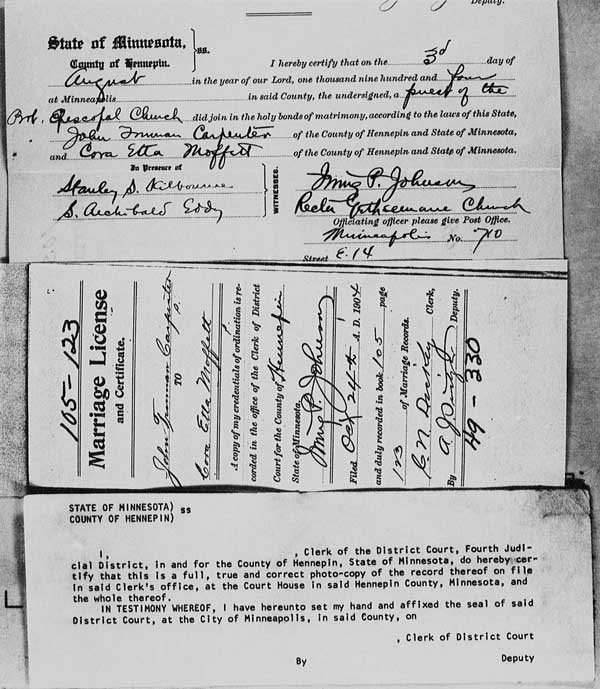 Deputy.
State of Minnesota,
County of Hennepin.
ss.
I hereby certify that on the 3d day of
August in the year of our Lord, one thousand nine hundred and four
at Minneapolis in said County, the undersigned, a priest of the
Prot. Episcopal Church did join in the holy bonds of matrimony, according to the laws of this State,
John Truman Carpenter of the County of Hennepin and State of Minnesota,
and Cora Etta Moffett of the County of Hennepin and State of Minnesota.
In Presence of
Stanley S. Kilbourne
S. Archibald Eddy
WITNESSES.
Irving P. Johnson
Rector Gethsemane Church
Officiating officer please give Post Office.
Minneapolis No. 710
Street E. 14
105-123
Marriage License
and Certificate.
John Truman Carpenter
TO
Cora Etta Moffett
A copy of my credentials of ordination is re-
corded in the office of the Clerk of District
Court for the County of Hennepin
State of Minnesota.
Irving P. Johnson
Filed Oct 24th A. D. 1904
and duly recorded in book 105 page
123 of Marriage Records.
C. N. Dickey Clerk,
By Deputy.
49-330
STATE OF MINNESOTA)
COUNTY OF HENNEPIN) ss
I, , Clerk of the District Court, Fourth Judi-
cial District, in and for the County of Hennepin, State of Minnesota, do hereby cer-
tify that this is a full, true and correct photo-copy of the record thereof on file
in said Clerk's office, at the Court House in said Hennepin County, Minnesota, and
the whole thereof.
IN TESTIMONY WHEREOF, I have hereunto set my hand and affixed the seal of said
District Court, at the City of Minneapolis, in said County, on
, Clerk of District Court
By Deputy